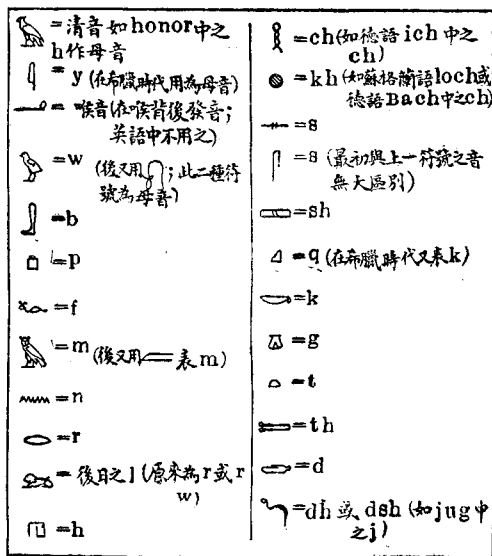 =清音如honor中之
h作母音
=y(在希臘時代用為母音)
=喉音(在喉背後發音;
英語中不用之)
=w (後又用 ;此二種符
號為母音)
=b
=p
=f
=m(後又用 表m)
=n
=r
=後日之l(原來為r或r
w)
=h
=ch(如德語ich中之
ch)
=kh(如蘇格蘭語loch或
德語Bach中之ch)
=s
=s(最初與上一符號之音
無大區別)
=sh
=q(在希臘時代又表k)
=k
=g
=t
=th
=d
=dh或dsh(如jug中
之j)